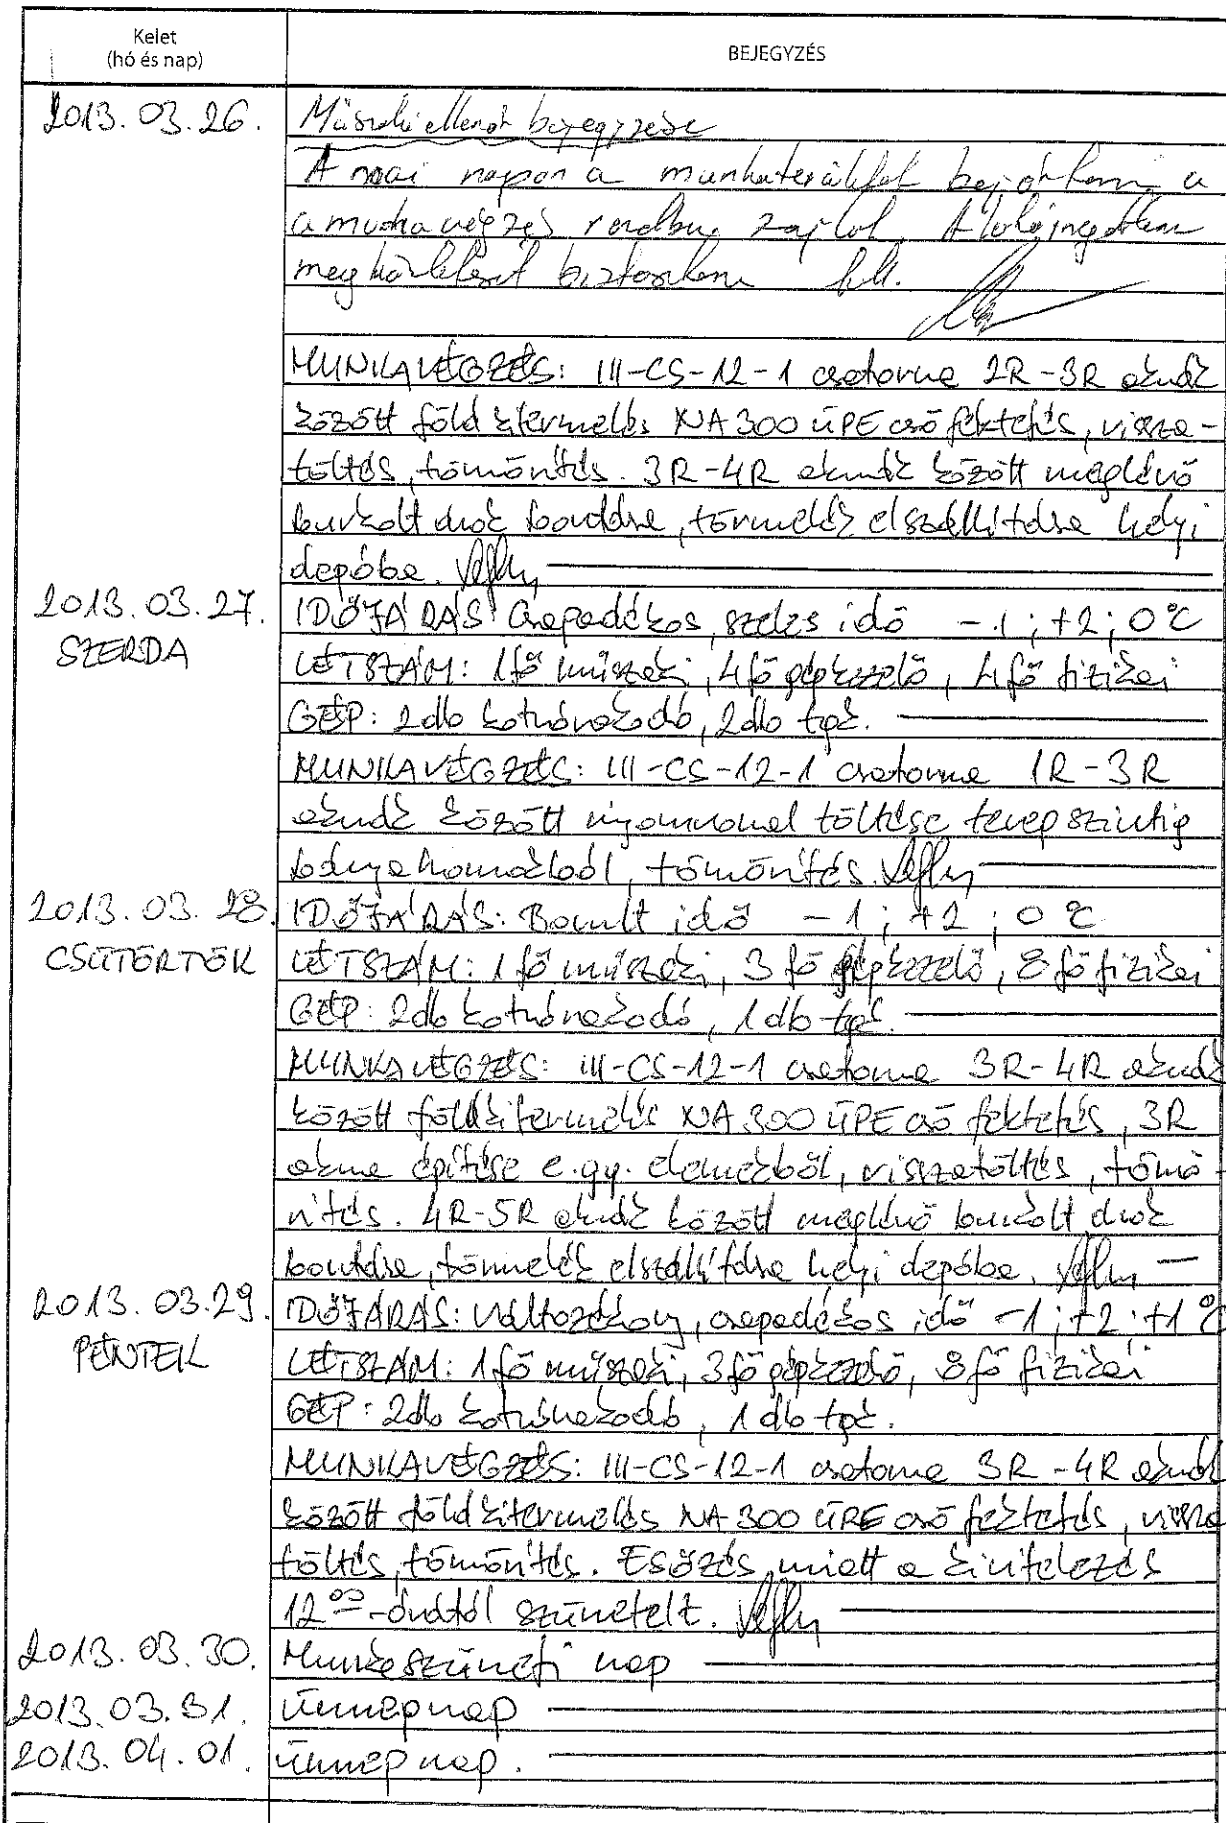 Kelet
(hó és nap)
BEJEGYZÉS
2013. 03. 26.
Műszaki ellenőr bejegyzése
A mai napon a munkaterületet bejártam a
a munkavégzés rendben zajlot. A
biztosítani kell.
MUNKAVÉGZÉS: III-CS-12-1 csatorna 2R-3R aknák
között föld kitermelés NA 300 ÜPE cső fektetés, vissza-
töltés, tömörítés. 3R-4R aknák között meglévő
burkolt árok bontása, törmelék elszállítása helyi
depóba.
2013. 03. 27.
SZERDA
IDŐJÁRÁS: Csapadékos, szeles idő -1; +2; 0 °C
LÉTSZÁM: 1 fő műszaki, 4 fő gépkezelő, 4 fő fizikai
GÉP: 2 db kotrórakodó, 2 db tgk.
MUNKAVÉGZÉS: III-CS-12-1 csatorna 1R-3R
aknák között nyomvonal töltése terepszintig
bányahomokból, tömörítés.
2013. 03. 28.
CSÜTÖRTÖK
IDŐJÁRÁS: Borult idő -1; +2; 0 °C
LÉTSZÁM: 1 fő műszaki, 3 fő gépkezelő, 8 fő fizikai
GÉP: 2 db kotrórakodó, 1 db tgk.
MUNKAVÉGZÉS: III-CS-12-1 csatorna 3R-4R aknák
között földkitermelés NA 300 ÜPE cső fektetés, 3R
akna építése e.gy. elemekből, visszatöltés, tömö-
rítés. 4R-5R aknák között meglévő burkolt árok
bontása, törmelék elszállítása helyi depóba.
2013. 03. 29.
PÉNTEK
IDŐJÁRÁS: Változékony, csapadékos idő -1; +2; +1 °C
LÉTSZÁM: 1 fő műszaki, 3 fő gépkezelő, 8 fő fizikai
GÉP: 2 db kotrórakodó, 1 db tgk.
MUNKAVÉGZÉS: III-CS-12-1 csatorna 3R-4R aknák
között föld kitermelés NA 300 ÜPE cső fektetés, vissza
töltés, tömörítés. Esőzés miatt a kivitelezés
12⁰⁰-órától szünetelt.
2013. 03. 30.
Munkaszüneti nap
2013. 03. 31.
Ünnepnap
2013. 04. 01.
Ünnepnap.